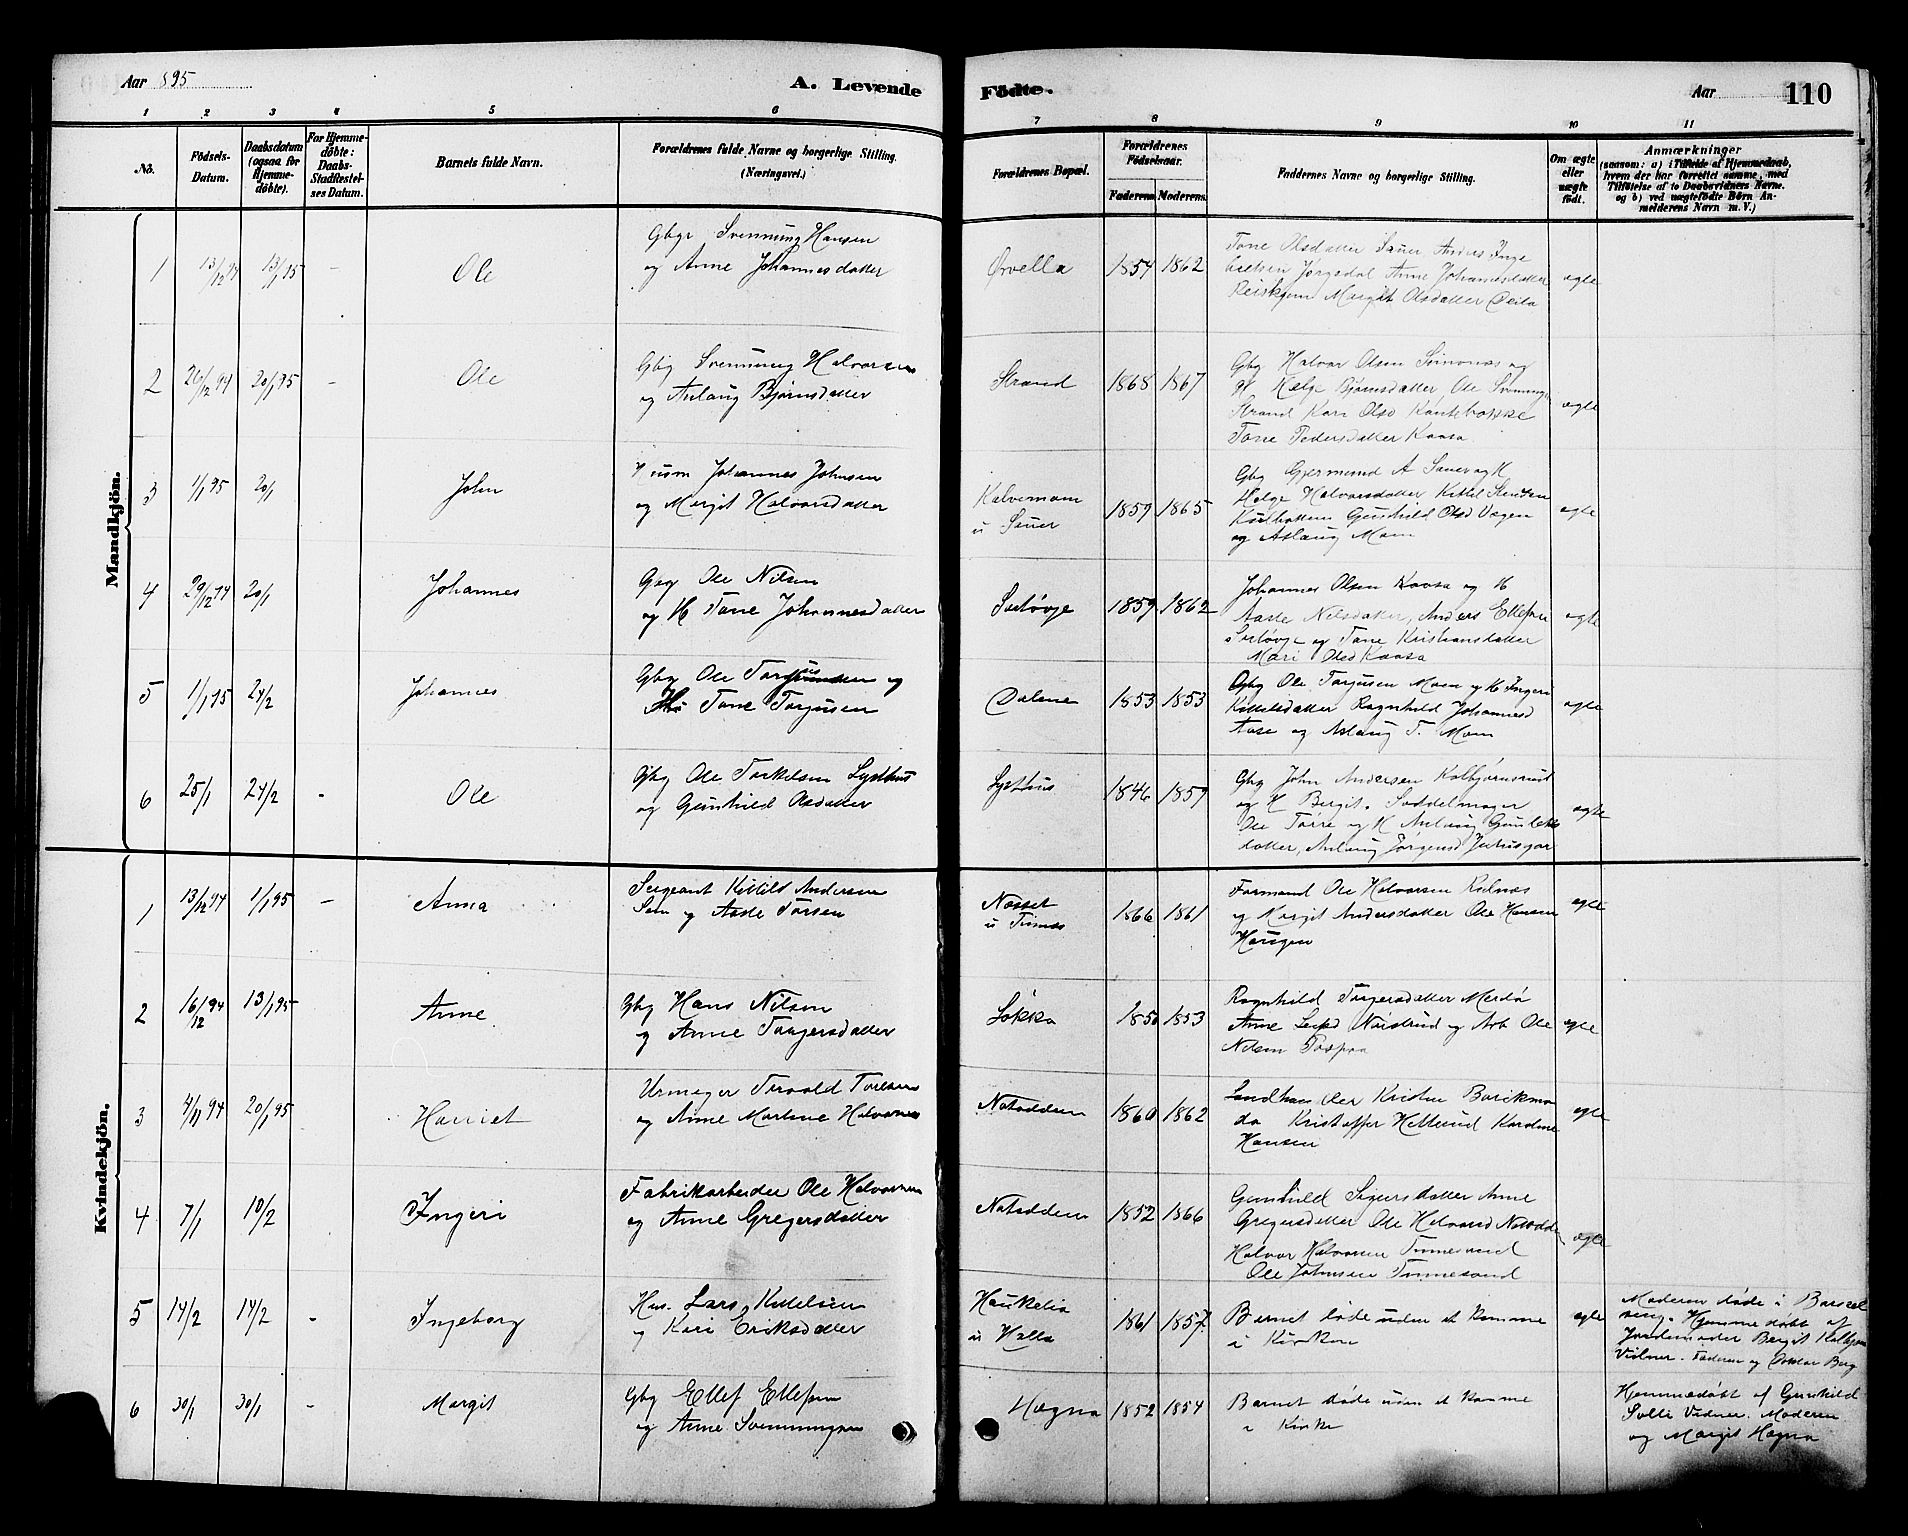 Aar 895
A. Levende
Födte.
Aar
110
1 2 3 4 5 6 7 8 9 10 11
No.
Födsels-
Datum.
Daabsdatum
(ogsaa for
Hjemme-
döbte).
For Hjemme-
döbte:
Daabs-
Stadfæstel-
ses Datum.
Barnets fulde Navn.
Forældrenes fulde Navne og borgerlige Stilling.
(Næringsvei.)
Forældrenes Bopæl.
Forældrenes
Födselsaar.
Faderens.
Moderens.
Faddernes Navne og borgerlige Stilling.
Om ægte
eller
uægte
födt.
Anmærkninger
(saasom: a) i Tilfælde af Hjemmedaab,
hvem der har forrettet samme, med
Tilföielse af to Daabsvidners Navne.
og b) ved uægtefödte Börn An-
melderens Navn m. V.)
Mandkjön.
1 13/12 94 13/1 95 - Ole
Gbgr Svennung Hansen
og Anne Johannesdatter
Ørvella 1854 1862
Tone Olsdatter Sauer Anders Inge
bretsen Jørgedal Anne Johannesdatter
Margit Olsdatter
ægte
2 26/12 94 20/1 95 - Ole
Gbg Svennung Halvorsen
og Aslaug Bjørnsdatter
Strand 1868 1867
Gbg Halvor Olsen Semonas og
H Helge Bjørnsdatter, Ole Svennungs
Strand Kari Olsd
Tone Pedersdatter Kaasa
ægte
3 1/1 95 20/1 John
Husm Johannes Johnsen
og Margit Halvorsdatter
Kalvemoen
u Sauer
1859 1865
Gbg Gjermund A Sauer og H
Helge Halvorsdatter Kittil
Gunhild Olsd Vegen
og Aslaug Moen
ægte
4 29/12 94 20/1 Johannes
Gbg Ole Nilsen
og H Tone Johannesdatter
1859 1862
Johannes Olsen Kaasa og H
Aaste Nilsdatter, Anders Ellefsen
og Tone Kristiansdatter
Mari Olsd Kaasa
ægte
5 1/1 95 24/2 Johannes
Gbg Ole Torgusen og
Tone Torgusen
Dalene 1853 1853
Gbg Ole Torjusen Moen og H Ingeri
Kittilsdatter Ragnhild Johannesd
Aase og Aslaug T. Moen
ægte
6 25/1 24/2 - Ole
Gbg Ole Torkelsen Lysthus
og Gunhild Olsdatter
Lysthus 1846 1857
Gbg John Andersen Kolbjørnsrud
og H Bergit. Saddelmager
Ole Torre og H Aslaug Gunleks
datter, Aslaug Jørgensd
ægte
Kvindekjön.
1 13/12 94 1/1 95 - Anna
Sergeant Kittild Andersen
Sem og Aase Torsen
Nesset
u Tinnes
1866 1861
Formand Ole Halvorsen
og Margit Andersdatter Ole Hansen
Haugen
ægte
2 16/12 94 13/1 95 Anne
Gbg Hans Nilsen
og Anne Torgersdatter
Løkka 1850 1853
Ragnhild Torgersdatter
Anne og Arb Ole
Nilsen
ægte
3 4/11 94 20/1 95 Harriet
Urmager Torvald Toresen
og Anne Martine Halvorsen
Notodden 1860 1862
Landhandler Kristine
do Kristoffer Hetterud Karoline
Hansen
ægte
4 7/1 10/2 Ingeri
Fabrikarbeider Ole Halvorsen
og Anne Gregersdatter
Notodden 1852 1866
Gunhild Sigursdatter Anne
Gregersdatter Ole Halvorsd Notodden
Halvor Halvorsen Tinnesand
Ole Johnsen Tinnesand
ægte
5 14/2 14/2 - Ingeborg
Hus. Lars Kittelsen
og Kari Eriksdatter
Haukelia
u Hella
1861 1857
Barnet døde uden at komme
i Kirken
ægte
Moderen døde i Barsel
seng. Hjemmedøbt af
Jordemoder Bergit
Vidner. Faderen og Doktor Berg
6 30/1 30/1 - Margit
Gbg Ellef Ellefsen
og Anne Svennungsen
Hægna 1852 1854
Barnet døde uden at komme
i Kirke
Hjemmedøbt af Gunhild
Solli Vidner. Moderen
og Margit Hægna